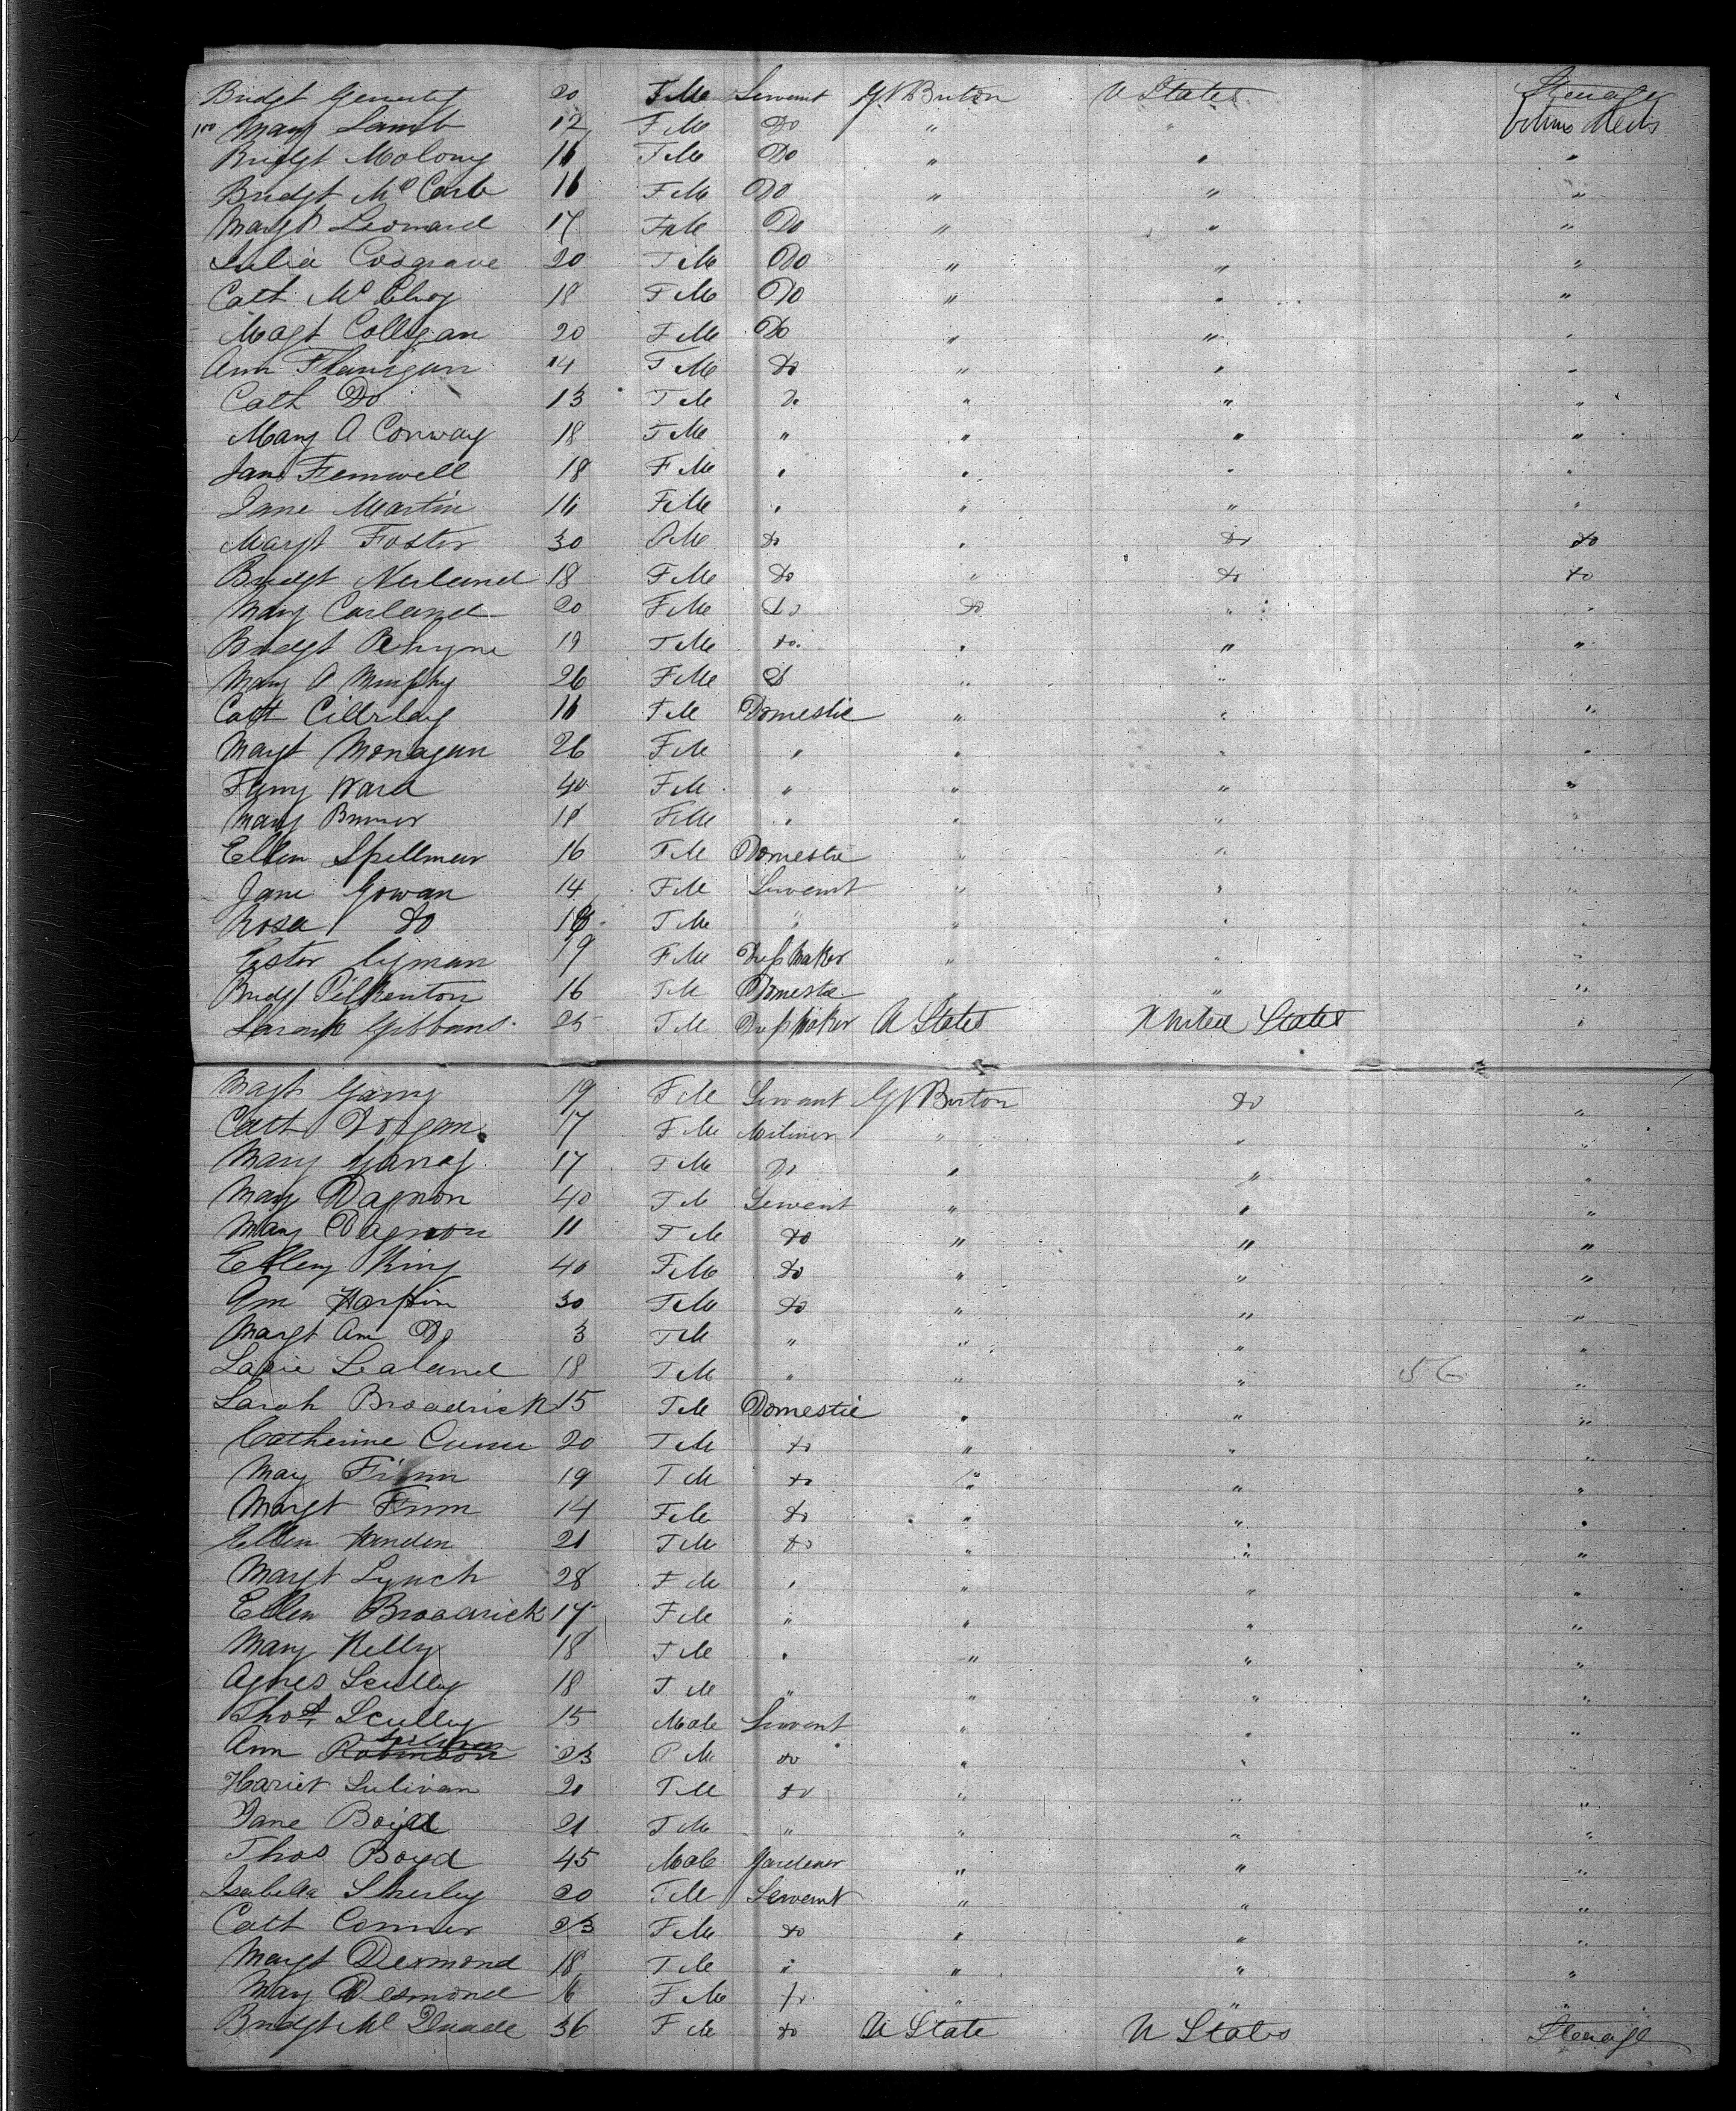 Bridgt 20 FMe Servant Gt Briton U States Steerage
100 Mary Lamb 12 FMe Do " " betwn decks
Bridgt Molony 16 FMe Do " " "
Bridgt Mc 16 FMe Do " " "
Margt Leonard 17 FMe Do " " "
Julia Cosgrave 20 FMe Do " " "
Cath Mc Elroy 18 FMe Do " " "
Magt Colligan 20 FMe Do " " "
Ann Flanigan 14 FMe Do " " "
Cath Do 13 FMe Do " " "
Mary A Conway 18 FMe " " " "
Jane 18 FMe " " " "
Jane Martin 16 FMe " " " "
Margt Foster 30 FMe Do " Do Do
Bridgt Nerland 18 FMe Do " Do Do
Mary Carland 20 FMe Do Do " "
Bridgt 19 FMe Do " " "
Mary A Murphy 26 FMe Do " " "
Cath 16 FMe Domestic " " "
Margt Monagan 26 FMe " " " "
Fanny Ward 40 FMe " " " "
Mary 18 FMe " " " "
Ellen Spellman 16 FMe Domestic " " "
Jane Gowan 14 FMe Servant " " "
Rosa Do FMe " " " "
Ester 19 FMe Dressmaker " " "
Bridgt Pilkenton 16 FMe Domestic " " "
Sarah Gibbons 25 FMe Dressmaker U States United States "
Magt Garry 19 FMe Servant Gt Briton Do "
Cath 17 FMe Miliner " " "
Mary 17 FMe Do " " "
Mary Dagnon 40 FMe Servant " " "
Mary Dagnon 11 FMe Do " " "
Elleny King 40 FMe Do " " "
Ann 30 FMe Do " " "
Margt Ann Do 3 FMe " " " "
Lealand 18 FMe " " " 56 "
Sarah Broadrick 15 FMe Domestic " " "
Catherine 20 FMe Do " " "
Mary Finn 19 FMe Do " " "
Margt Finn 14 FMe Do " " "
Ellen 21 FMe Do " " "
Margt Lynch 28 FMe " " " "
Ellen Broadrick 17 FMe " " " "
Mary Kelly 18 FMe " " " "
Agnes Scully 18 FMe " " " "
Thos Scully 15 Male Servant " " "
Ann Robinson Sulivan 23 FMe Do " " "
Hariet Sulivan 20 FMe Do " " "
Jane Boyd 21 FMe " " " "
Thos Boyd 45 Male Gardener " " "
Isabella Sherley 20 FMe Servant " " "
Cath Conner 23 FMe Do " " "
Margt Desmond 18 FMe " " " "
Mary Desmond 16 FMe Do " " "
Bridgt Mc Quade 36 FMe Do U State U States Steerage